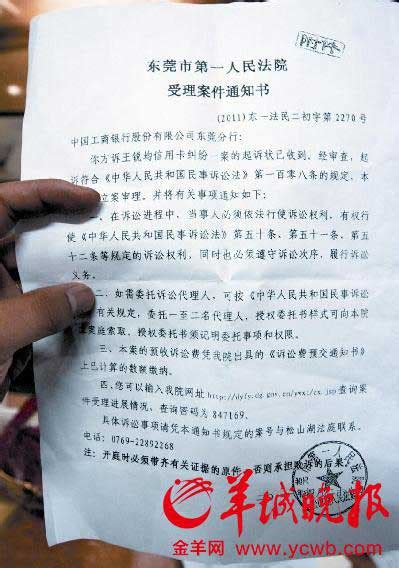 东莞市第一人民法院
受理案件通知书
(2011)东一法民二初字第2270号
中国工商银行股份有限公司东莞分行:
你方诉王锐均信用卡纠纷一案的起诉状已收到。经审查,起
诉符合《中华人民共和国民事诉讼法》第一百零八条的规定,本
立案审理。并将有关事项通知如下:
一、在诉讼进程中,当事人必须依法行使诉讼权利,有权行
使《中华人民共和国民事诉讼法》第五十条、第五十一条、第五
十二条等规定的诉讼权利,同时也必须遵守诉讼次序,履行诉讼
义务。
二、如需委托诉讼代理人,可按《中华人民共和国民事诉讼
规定,委托一至二名代理人,授权委托书样式可向本院
庭索取,授权委托书须记明委托事项和权限。
三、本案的预收诉讼费凭我院出具的《诉讼费预交通知书》
上已计算的数额缴纳。
四、您可以输入我院网址http://dyfy.dg.gov.cn/ywx/cx.jsp查询案
件受理进展情况,查询密码为847169。
具体诉讼事项请凭本通知书规定的案号与松山湖法庭联系。
电话:0769-22892268
注:开庭时必须带齐有关证据的原件,否则承担败诉的后果。
羊城晚报
金羊网 www.ycwb.com